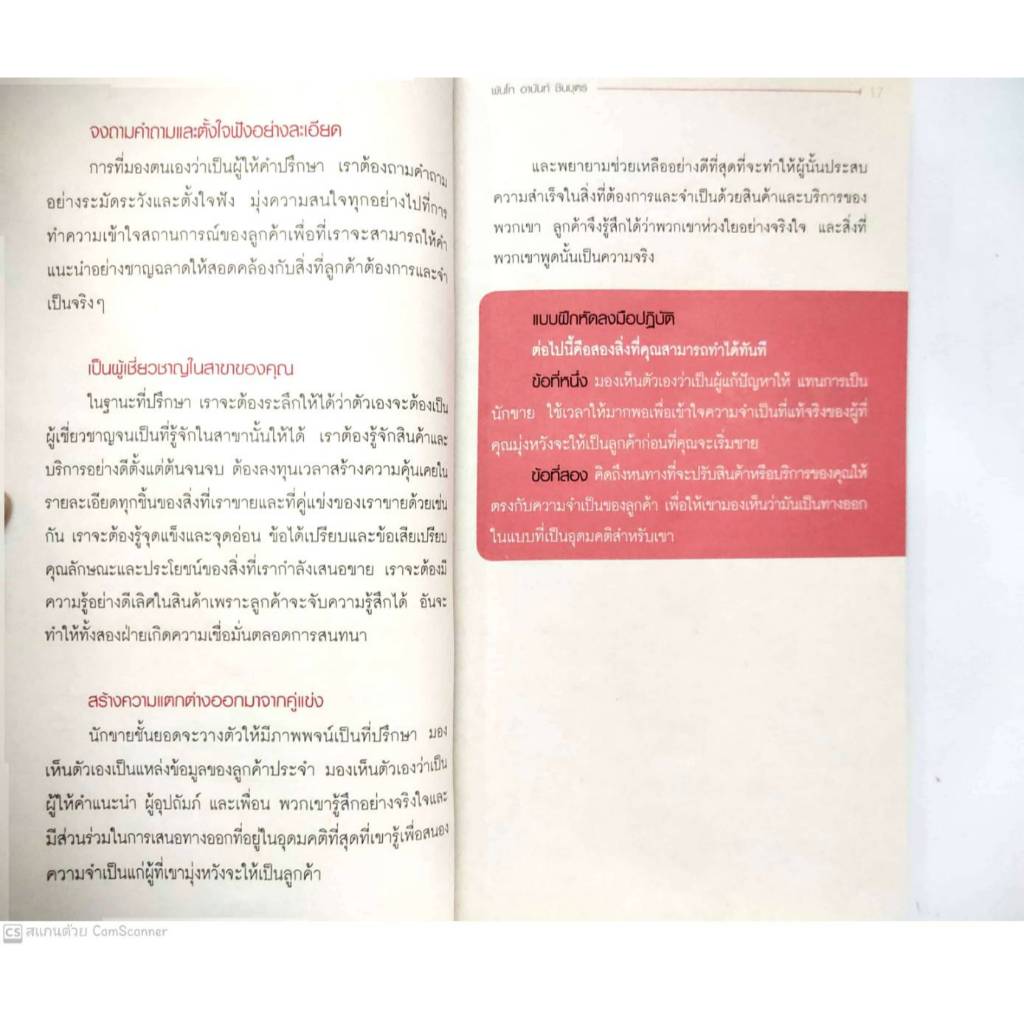 จงถามคำถามและตั้งใจฟังอย่างละเอียด
การที่มองตนเองว่าเป็นผู้ให้คำปรึกษา เราต้องถามคำถาม
อย่างระมัดระวังและตั้งใจฟัง มุ่งความสนใจทุกอย่างไปที่การ
ทำความเข้าใจสถานการณ์ของลูกค้าเพื่อที่เราจะสามารถให้คำ
แนะนำอย่างชาญฉลาดให้สอดคล้องกับสิ่งที่ลูกค้าต้องการและจำ
เป็นจริงๆ
เป็นผู้เชี่ยวชาญในสาขาของคุณ
ในฐานะที่ปรึกษา เราจะต้องระลึกให้ได้ว่าตัวเองจะต้องเป็น
ผู้เชี่ยวชาญจนเป็นที่รู้จักในสาขานั้นให้ได้ เราต้องรู้จักสินค้าและ
บริการอย่างดีตั้งแต่ต้นจนจบ ต้องลงทุนเวลาสร้างความคุ้นเคยใน
รายละเอียดทุกชิ้นของสิ่งที่เราขายและที่คู่แข่งของเราขายด้วยเช่น
กัน เราจะต้องรู้จุดแข็งและจุดอ่อน ข้อได้เปรียบและข้อเสียเปรียบ
คุณลักษณะและประโยชน์ของสิ่งที่เรากำลังเสนอขาย เราจะต้องมี
ความรู้อย่างดีเลิศในสินค้าเพราะลูกค้าจะจับความรู้สึกได้ อันจะ
ทำให้ทั้งสองฝ่ายเกิดความเชื่อมั่นตลอดการสนทนา
สร้างความแตกต่างออกมาจากคู่แข่ง
นักขายชั้นยอดจะวางตัวให้มีภาพพจน์เป็นที่ปรึกษา มอง
เห็นตัวเองเป็นแหล่งข้อมูลของลูกค้าประจำ มองเห็นตัวเองว่าเป็น
ผู้ให้คำแนะนำ ผู้อุปถัมภ์ และเพื่อน พวกเขารู้สึกอย่างจริงใจและ
มีส่วนร่วมในการเสนอทางออกที่อยู่ในอุดมคติที่สุดที่เขารู้เพื่อสนอง
ความจำเป็นแก่ผู้ที่เขามุ่งหวังจะให้เป็นลูกค้า
พันโท อานันท์ ชินบุตร 17
และพยายามช่วยเหลืออย่างดีที่สุดที่จะทำให้ผู้นั้นประสบ
ความสำเร็จในสิ่งที่ต้องการและจำเป็นด้วยสินค้าและบริการของ
พวกเขา ลูกค้าจึงรู้สึกได้ว่าพวกเขาห่วงใยอย่างจริงใจ และสิ่งที่
พวกเขาพูดนั้นเป็นความจริง
แบบฝึกหัดลงมือปฏิบัติ
ต่อไปนี้คือสองสิ่งที่คุณสามารถทำได้ทันที
ข้อที่หนึ่ง มองเห็นตัวเองว่าเป็นผู้แก้ปัญหาให้ แทนการเป็น
นักขาย ใช้เวลาให้มากพอเพื่อเข้าใจความจำเป็นที่แท้จริงของผู้ที่
คุณมุ่งหวังจะให้เป็นลูกค้าก่อนที่คุณจะเริ่มขาย
ข้อที่สอง คิดถึงหนทางที่จะปรับสินค้าหรือบริการของคุณให้
ตรงกับความจำเป็นของลูกค้า เพื่อให้เขามองเห็นว่ามันเป็นทางออก
ในแบบที่เป็นอุดมคติสำหรับเขา
CS สแกนด้วย CamScanner